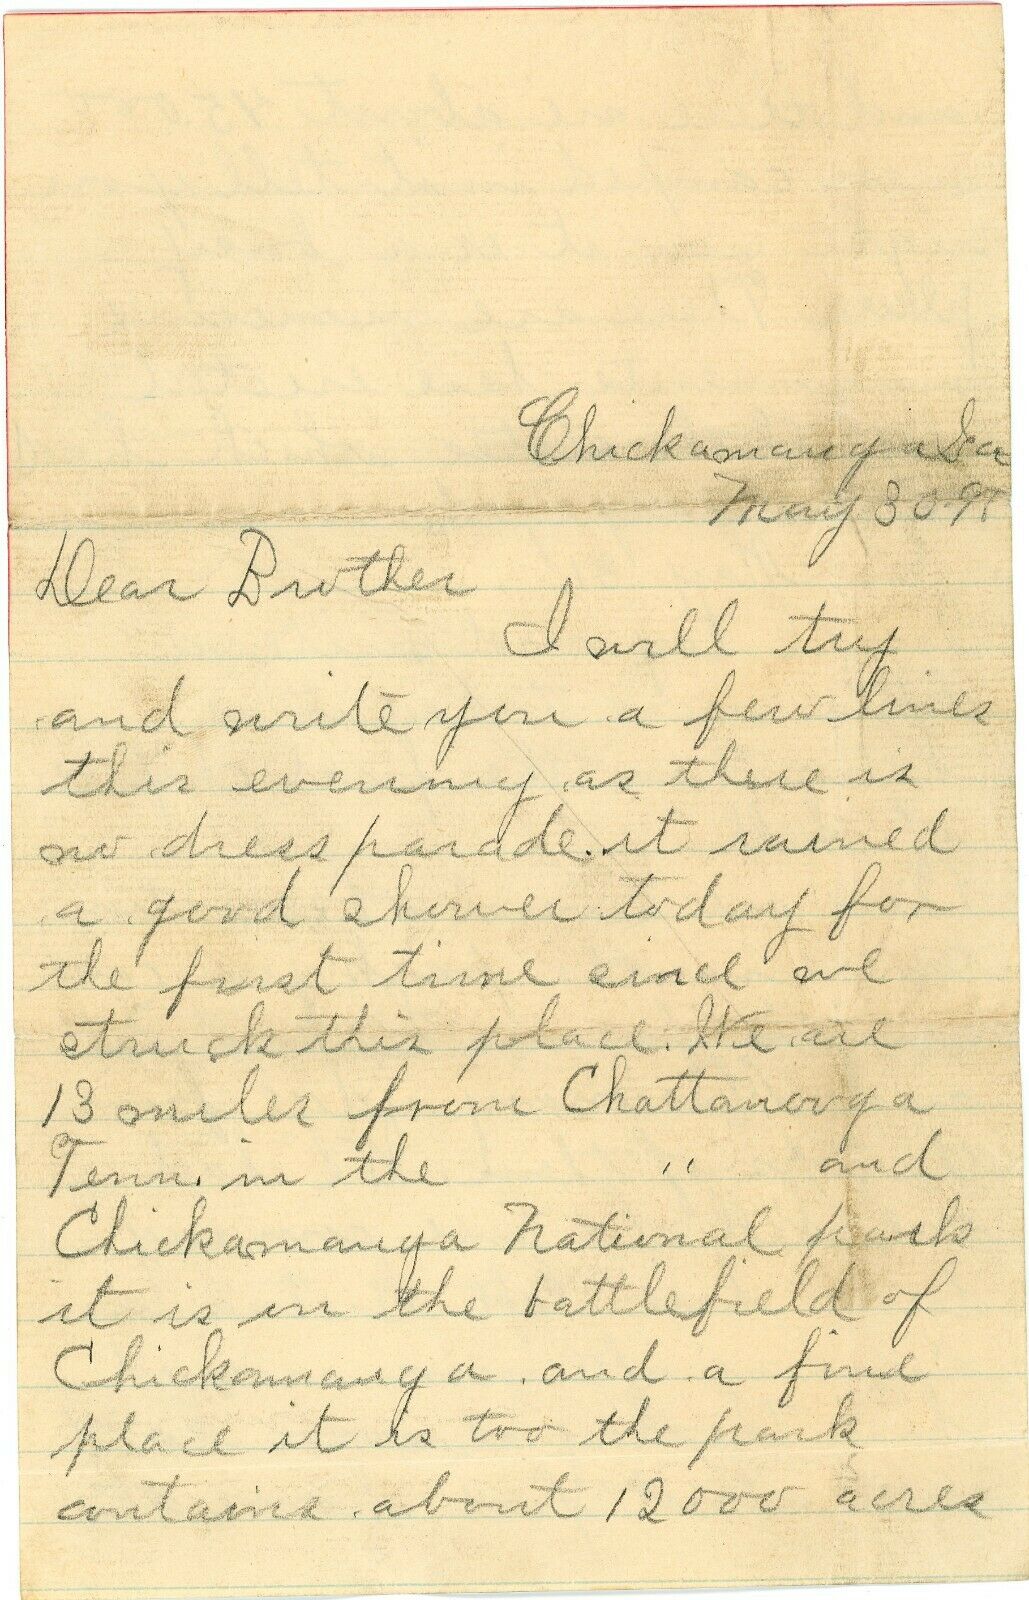 Chickamauga Ga
May 30 98
Dear Brother
I will try
and write you a few lines
this evening as there is
no dress parade. it rained
a good shower today for
the first time since we
struck this place. We are
13 miles from Chattanooga
Tenn. in the " and
Chickamauga National park
it is in the battlefield of
Chickamauga and a fine
place it is too the park
contains about 12000 acres